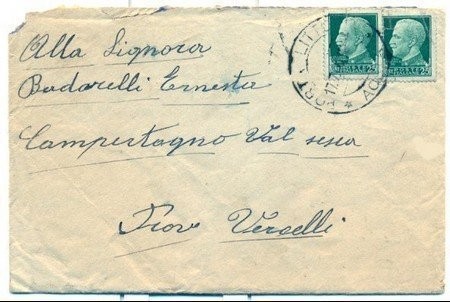 Alla Signora
Badarelli Ernesta
Campertagno Val sesia
Verselli